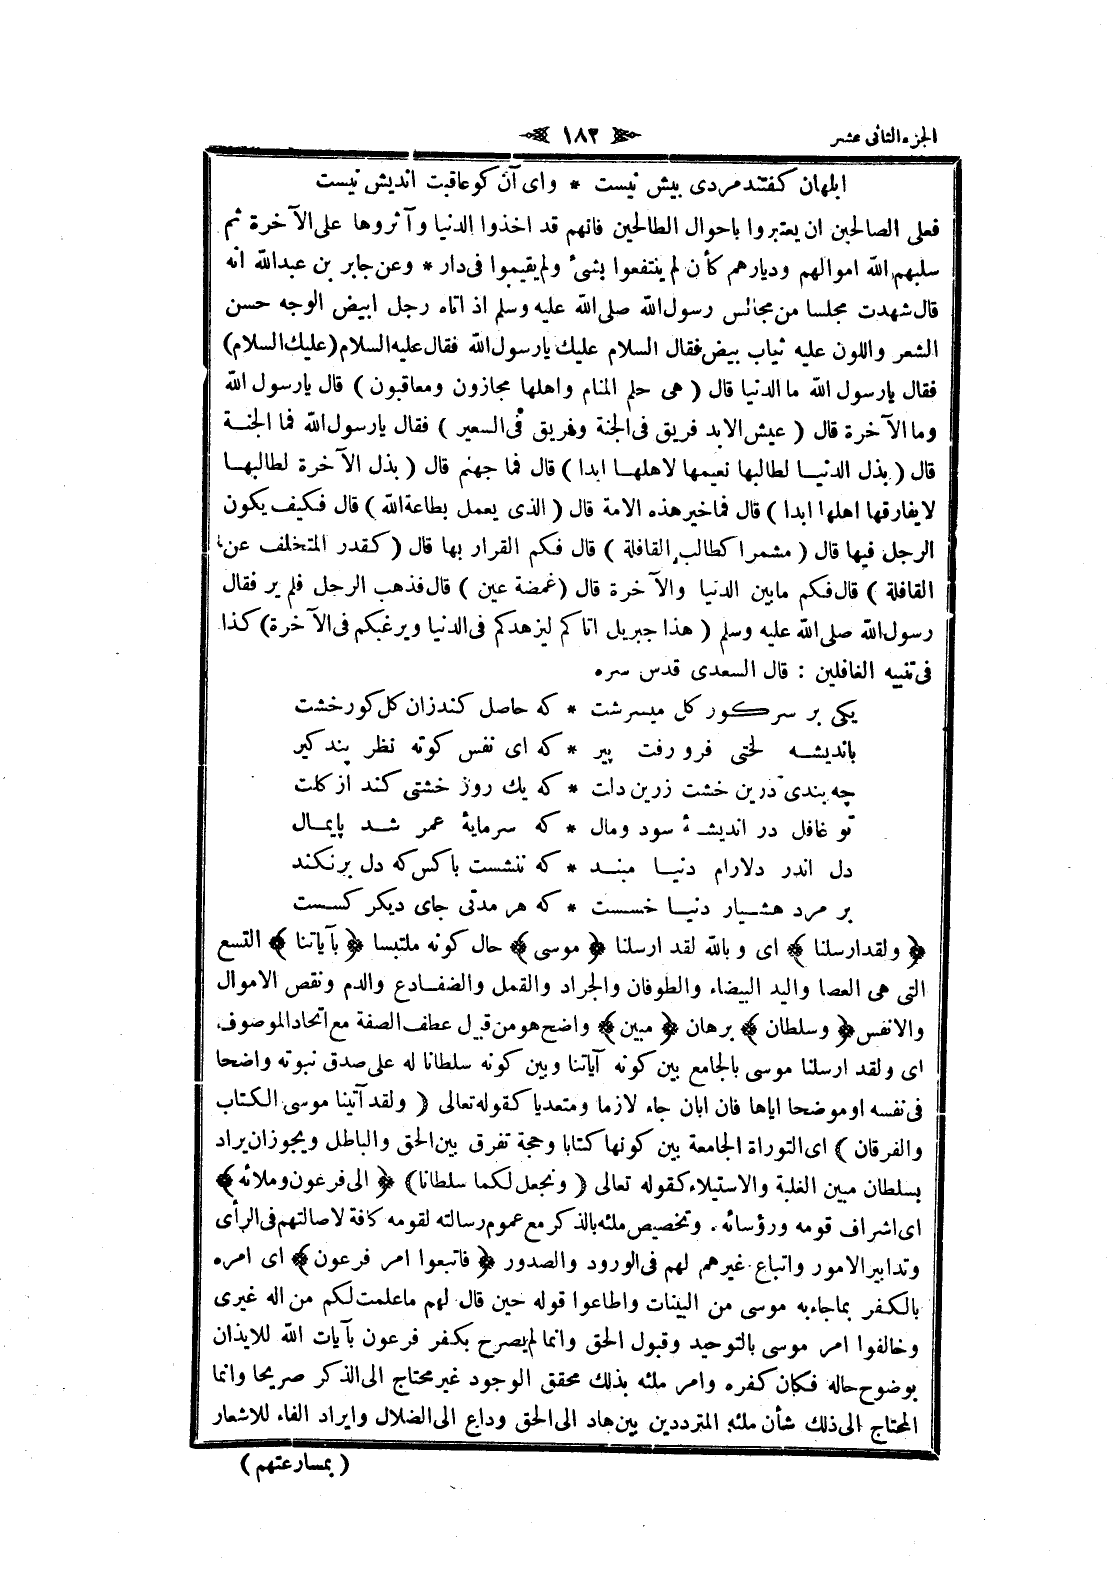 الجزء الثانى عشر
١٨٢
ابلهان كفتند مردى بيش نيست * واى آن كو عاقبت انديش نيست
فعلى الصالحين ان يعتبروا باحوال الطالحين فانهم قد اخذوا الدنيا وآثروها على الآخرة ثم
سلبهم الله اموالهم وديارهم كأن لم ينتفعوا بشىء ولم يقيموا فى دار * وعن جابر بن عبدالله انه
قال شهدت مجلسا من مجالس رسول الله صلى الله عليه وسلم اذ اتاه رجل ابيض الوجه حسن
الشعر واللون عليه ثياب بيض فقال السلام عليك يارسول الله فقال عليه السلام (عليك السلام)
فقال يارسول الله ما الدنيا قال ( هى حلم المنام واهلها مجازون ومعاقبون ) قال يارسول الله
وما الآخرة قال ( عيش الابد فريق فى الجنة وفريق فى السعير ) فقال يارسول الله فما الجنة
قال ( بذل الدنيا لطالبها نعيمها لاهلها ابدا ) قال فما جهنم قال ( بذل الآخرة لطالبها
لايفارقها اهلها ابدا ) قال فماخير هذه الامة قال ( الذى يعمل بطاعة الله ) قال فكيف يكون
الرجل فيها قال ( مشمرا كطالب القافلة ) قال فكم القرار بها قال ( كقدر المتخلف عن
القافلة ) قال فكم مابين الدنيا والآخرة قال (غمضة عين ) قال فذهب الرجل فلم ير فقال
رسول الله صلى الله عليه وسلم ( هذا جبريل اتاكم ليزهدكم فى الدنيا ويرغبكم فى الآخرة) كذا
فى تنبيه الغافلين : قال السعدى قدس سره
يكى بر سر كور كل ميسرشت * كه حاصل كند زان كل كور خشت
بانديشه لختى فرو رفت پير * كه اى نفس كوته نظر پند كير
چه بندى درين خشت زرين دلت * كه يك روز خشتى كند از كلت
تو غافل در انديشۀ سود ومال * كه سرمايۀ عمر شد پايمال
دل اندر دلارام دنيا مبند * كه ننشست باكس كه دل برنكند
بر مرد هشيار دنيا خسست * كه هر مدتى جاى ديكر كسست
﴿ ولقد ارسلنا ﴾ اى وبالله لقد ارسلنا ﴿ موسى ﴾ حال كونه ملتبسا ﴿ بآياتنا ﴾ التسع
التى هى العصا واليد البيضاء والطوفان والجراد والقمل والضفادع والدم ونقص الاموال
والانفس ﴿ وسلطان ﴾ برهان ﴿ مبين ﴾ واضح هو من قبيل عطف الصفة مع اتحاد الموصوف
اى ولقد ارسلنا موسى بالجامع بين كونه آياتنا وبين كونه سلطانا له على صدق نبوته واضحا
فى نفسه او موضحا اياها فان ابان جاء لازما ومتعديا كقوله تعالى ( ولقد آتينا موسى الكتاب
والفرقان ) اى التوراة الجامعة بين كونها كتابا وحجة تفرق بين الحق والباطل ويجوز ان يراد
بسلطان مبين الغلبة والاستيلاء كقوله تعالى ( ونجعل لكما سلطانا) ﴿ الى فرعون وملائه ﴾
اى اشراف قومه ورؤسائه . وتخصيص ملئه بالذكر مع عموم رسالته لقومه كافة لاصالتهم فى الرأى
وتدابير الامور واتباع غيرهم لهم فى الورود والصدور ﴿ فاتبعوا امر فرعون ﴾ اى امره
بالكفر بماجاء به موسى من البينات واطاعوا قوله حين قال لهم ماعلمت لكم من اله غيرى
وخالفوا امر موسى بالتوحيد وقبول الحق وانما لم يصرح بكفر فرعون بآيات الله للايذان
بوضوح حاله فكان كفره وامر ملئه بذلك محقق الوجود غير محتاج الى الذكر صريحا وانما
المحتاج الى ذلك شأن ملئه المترددين بين هاد الى الحق وداع الى الضلال وايراد الفاء للاشعار
( بمسارعتهم )